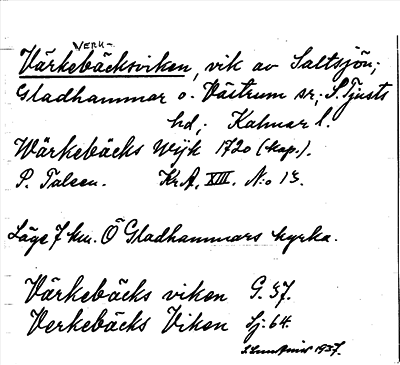 VERK-
Värkebäcksviken, vik av Saltsjön;
Gladhammar o. Västrum sr; S. Tjusts
hd; Kalmar l.
Wärkebäcks Wijk 1720 (kop.).
P. Talcen. KrA, XIII. N:o 13.
Läge 7 km. Ö Gladhammars kyrka.
Värkebäcks viken G. 57.
Verkebäcks Viken Sj. 64.
1937.